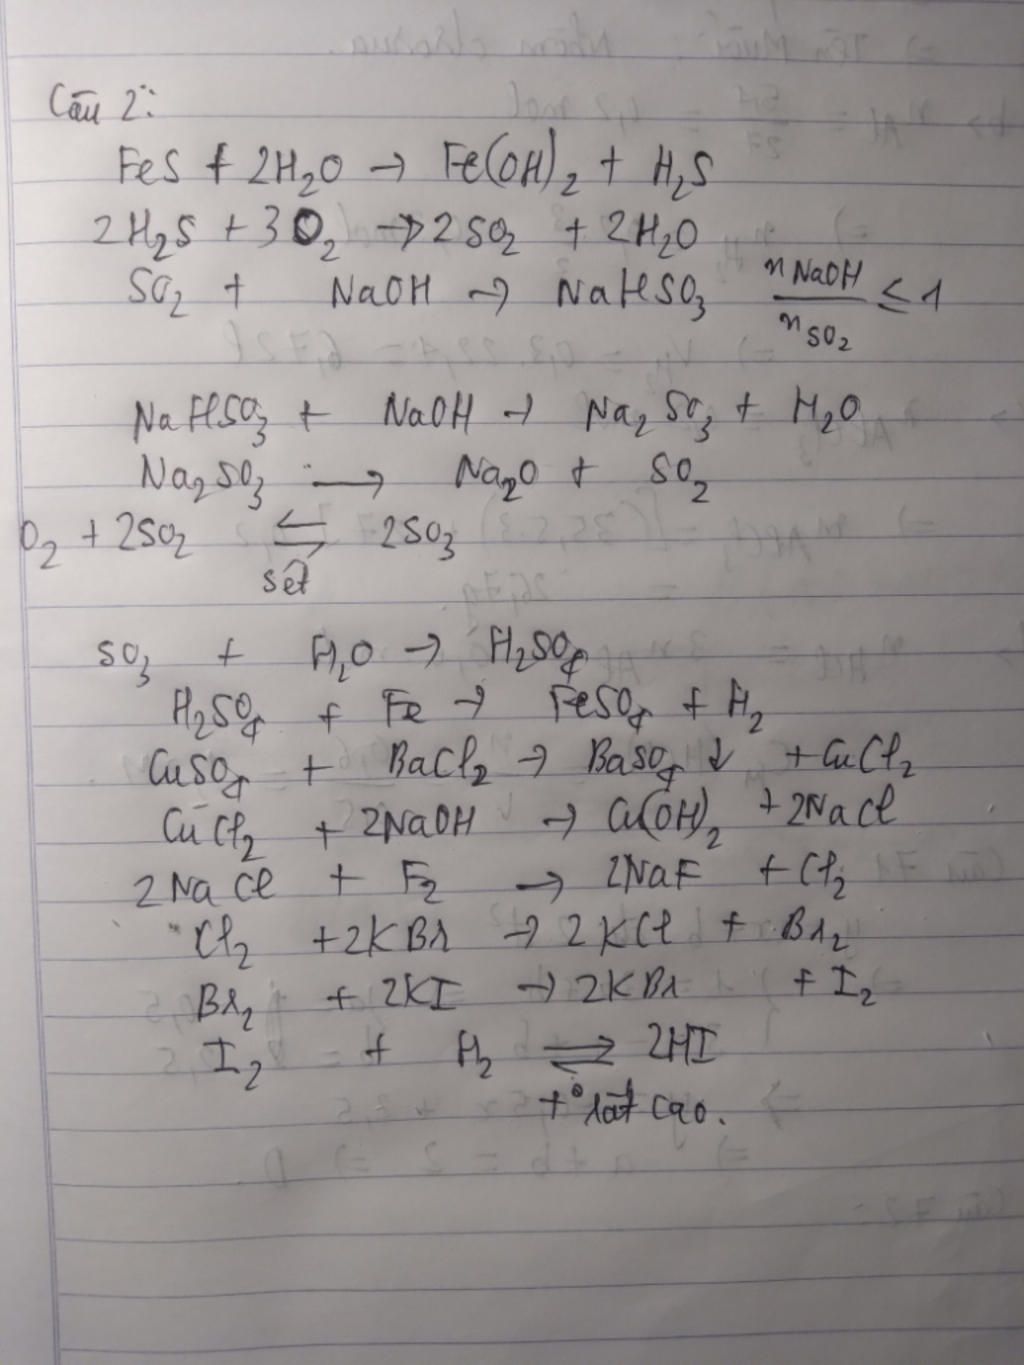 Câu 2:
FeS + 2H₂O → Fe(OH)₂ + H₂S
2H₂S + 3O₂ → 2SO₂ + 2H₂O
SO₂ + NaOH → NaHSO₃ nNaOH / nSO₂ ≤ 1
NaHSO₃ + NaOH → Na₂SO₃ + H₂O
Na₂SO₃ → Na₂O + SO₂
O₂ + 2SO₂ ⇌ 2SO₃
sét
SO₃ + H₂O → H₂SO₄
H₂SO₄ + Fe → FeSO₄ + H₂
CuSO₄ + BaCl₂ → BaSO₄ ↓ + CuCl₂
CuCl₂ + 2NaOH → Cu(OH)₂ + 2NaCl
2NaCl + F₂ → 2NaF + Cl₂
Cl₂ + 2KBr → 2KCl + Br₂
Br₂ + 2KI → 2KBr + I₂
I₂ + H₂ ⇌ 2HI
t° rất cao.